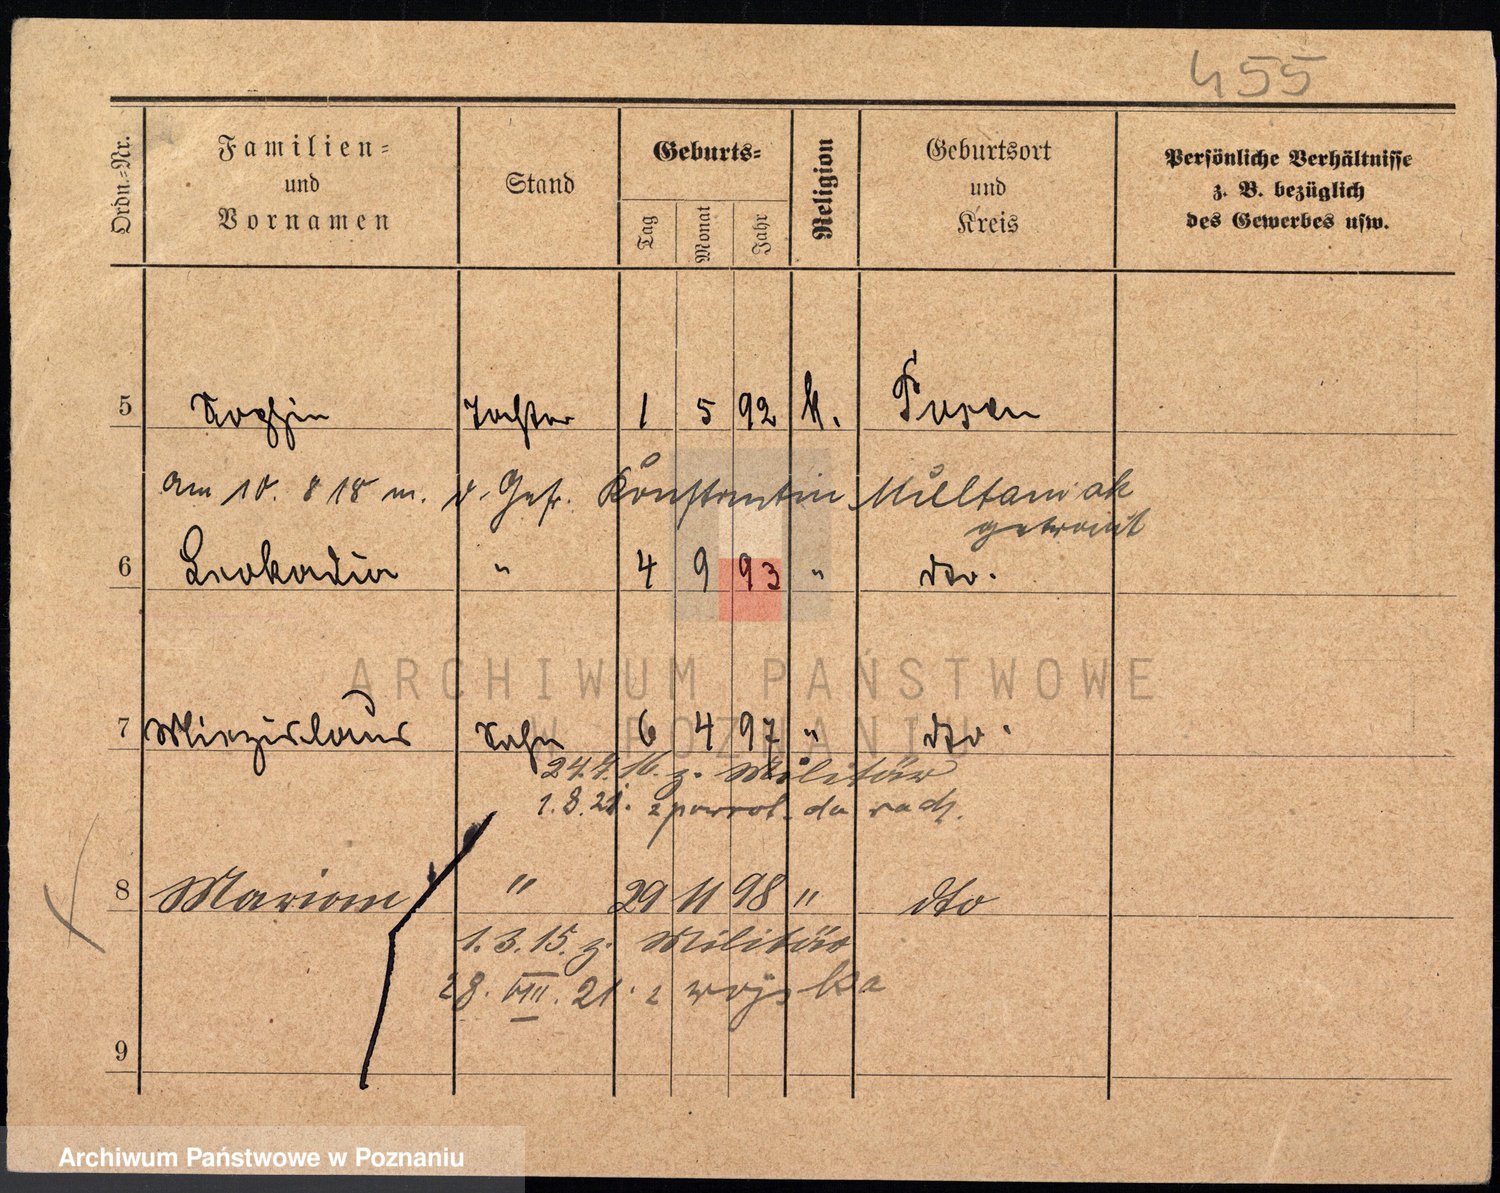 455
Ordn.-Nr.
Familien-
und
Vornamen
Stand
Geburts-
Tag
Monat
Jahr
Religion
Geburtsort
und
Kreis
Persönliche Verhältnisse
z. B. bezüglich
des Gewerbes usw.
5 Sophie Tochter 1 5 92 k. Posen
am 10. 8 18 m. d. Gefr. Konstantin Multaniak
getraut
6 Leokadia " 4 9 93 " dto.
ARCHIWUM PAŃSTWOWE
W POZNANIU
7 Miezislaus Sohn 6 4 97 " dto.
16. z. Militär
1.8.21. z powrot. do
8 Marian " 29 11 98 " dto
1.3.15. z. Militär
28. VIII. 21. z wojska
9
Archiwum Państwowe w Poznaniu